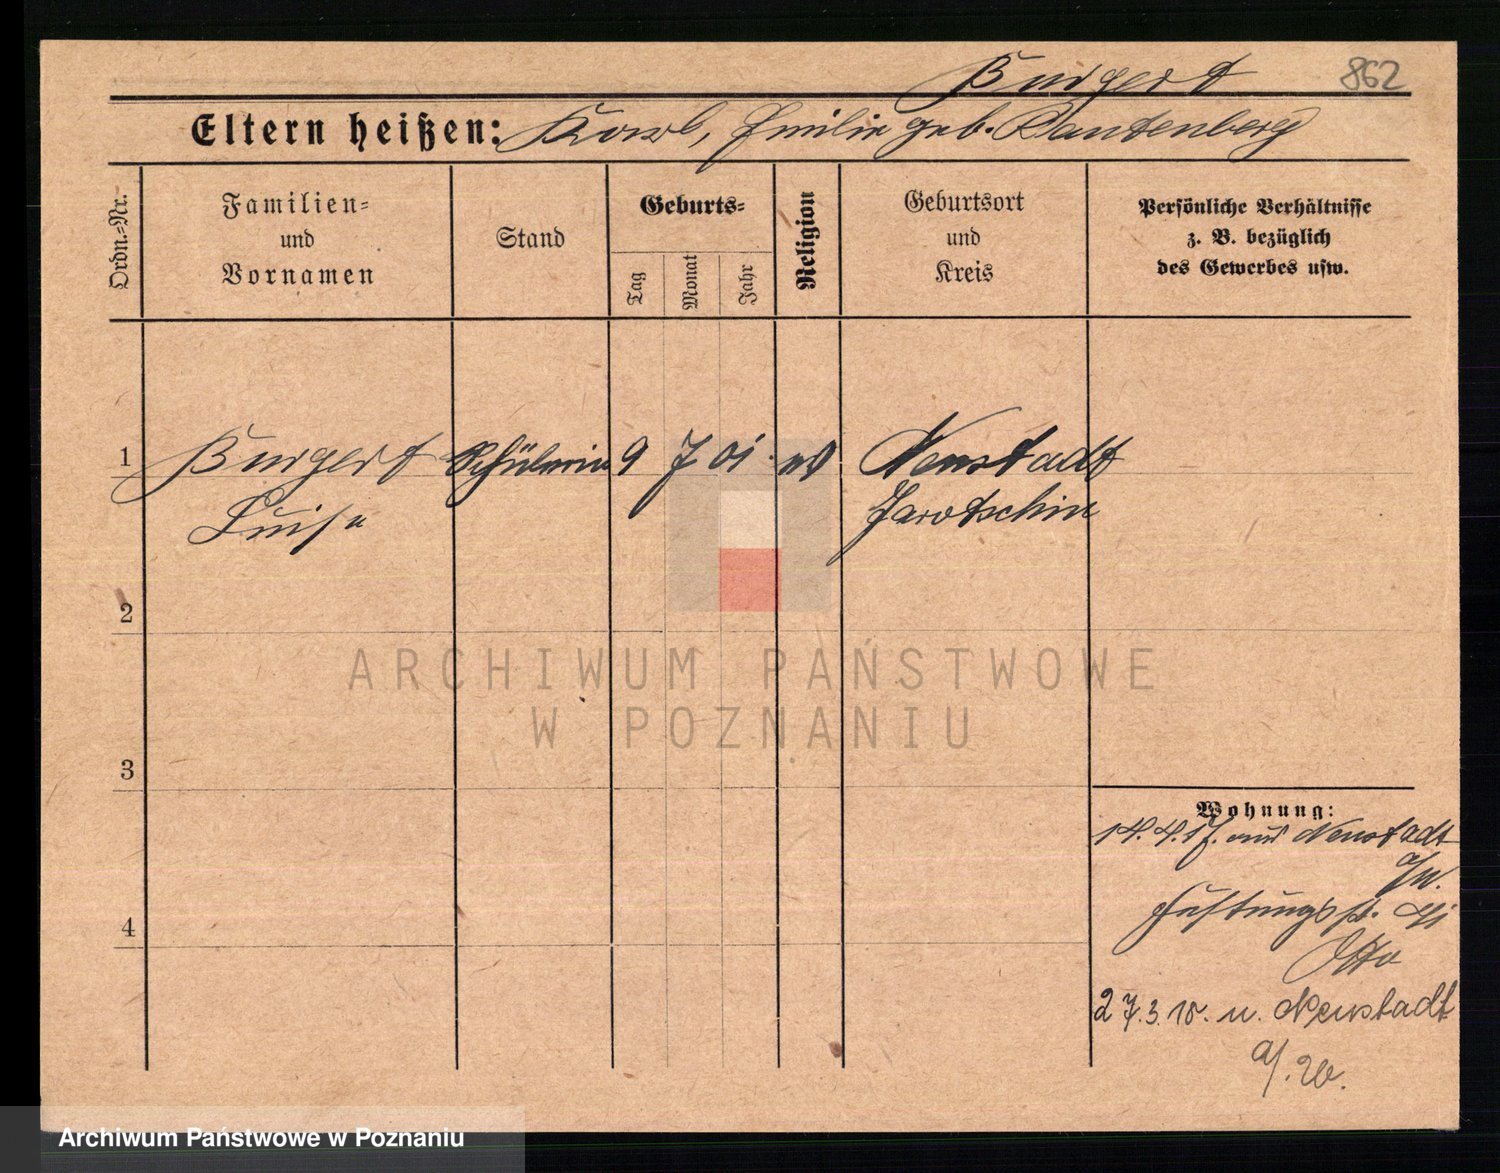 Burgert 862
Eltern heißen: Karl, Emilie geb. Rautenberg
Ordn.-Nr.
Familien-
und
Vornamen
Stand
Geburts-
Tag
Monat
Jahr
Religion
Geburtsort
und
Kreis
Persönliche Verhältnisse
z. B. bezüglich
des Gewerbes usw.
1 Burgert Schülerin 9 7 01 ev Neustadt
Luise Jarotschin
2
3
4
Wohnung:
14.4.17. aus Neustadt
a/W.
Otto
27.3.18. n. Neustadt
a/.W.
ARCHIWUM PAŃSTWOWE
W POZNANIU
Archiwum Państwowe w Poznaniu